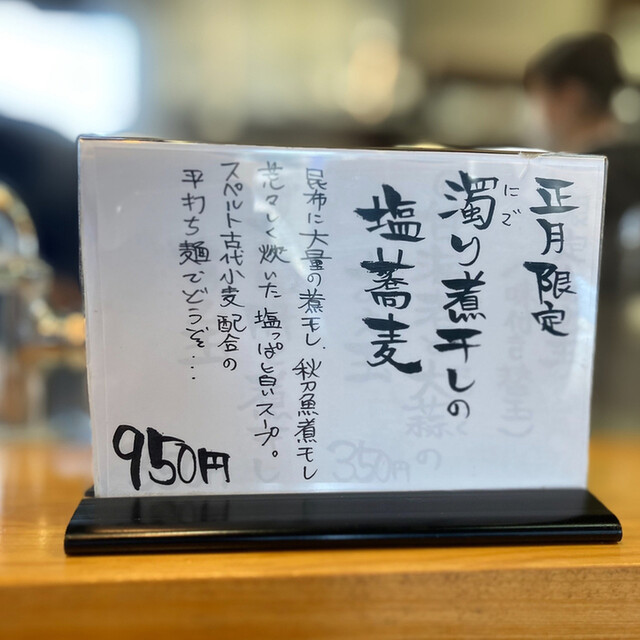 正月限定
にご
濁り煮干しの
塩蕎麦
昆布に大量の煮干し、秋刀魚煮干し
荒々しく炊いた塩っぱ旨いスープ。
スペルト古代小麦配合の
平打ち麺でどうぞ...
950円
350円